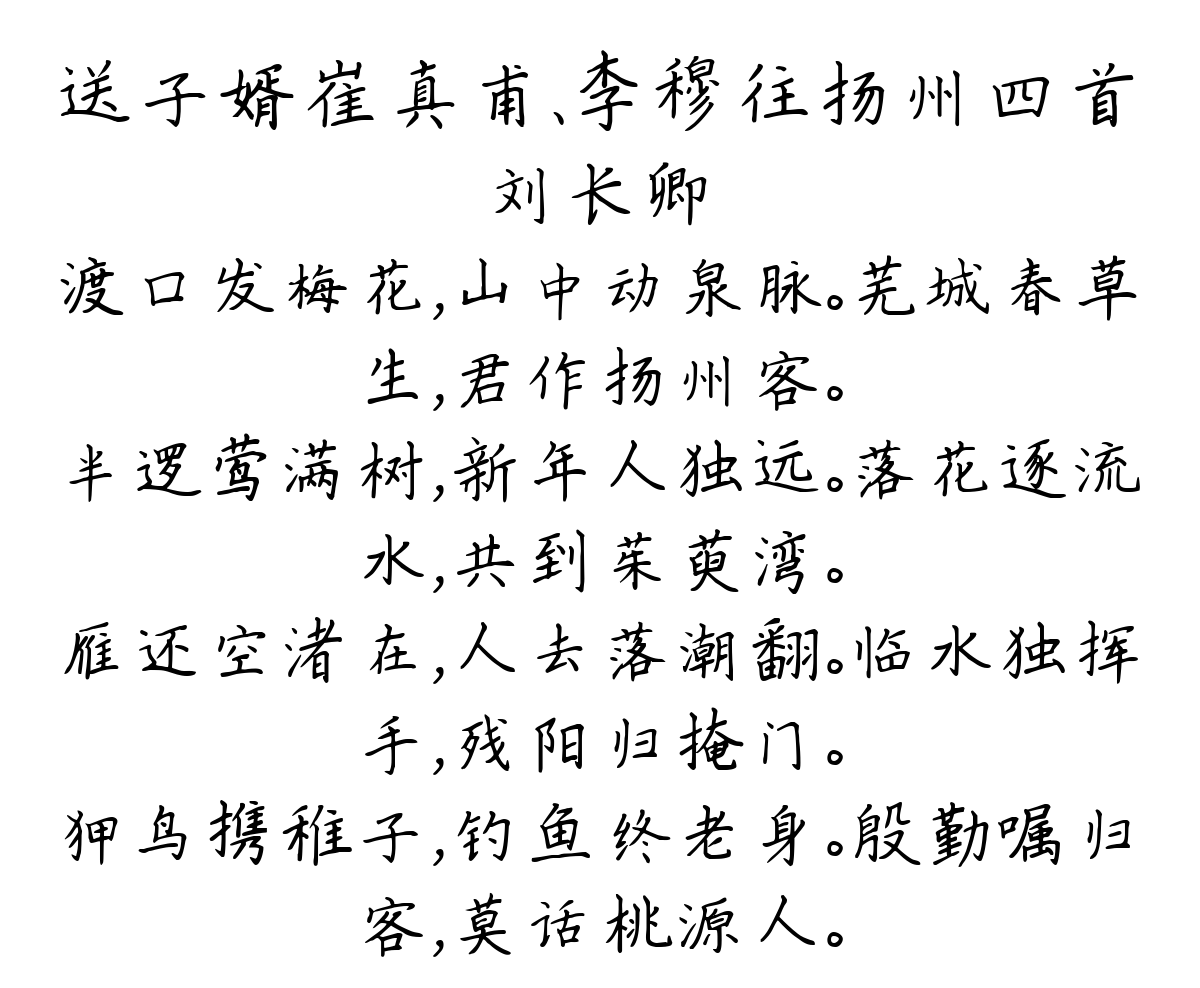 送子婿崔真甫、李穆往扬州四首
刘长卿
渡口发梅花,山中动泉脉。芜城春草
生,君作扬州客。
半逻莺满树,新年人独远。落花逐流
水,共到茱萸湾。
雁还空渚在,人去落潮翻。临水独挥
手,残阳归掩门。
狎鸟携稚子,钓鱼终老身。殷勤嘱归
客,莫话桃源人。